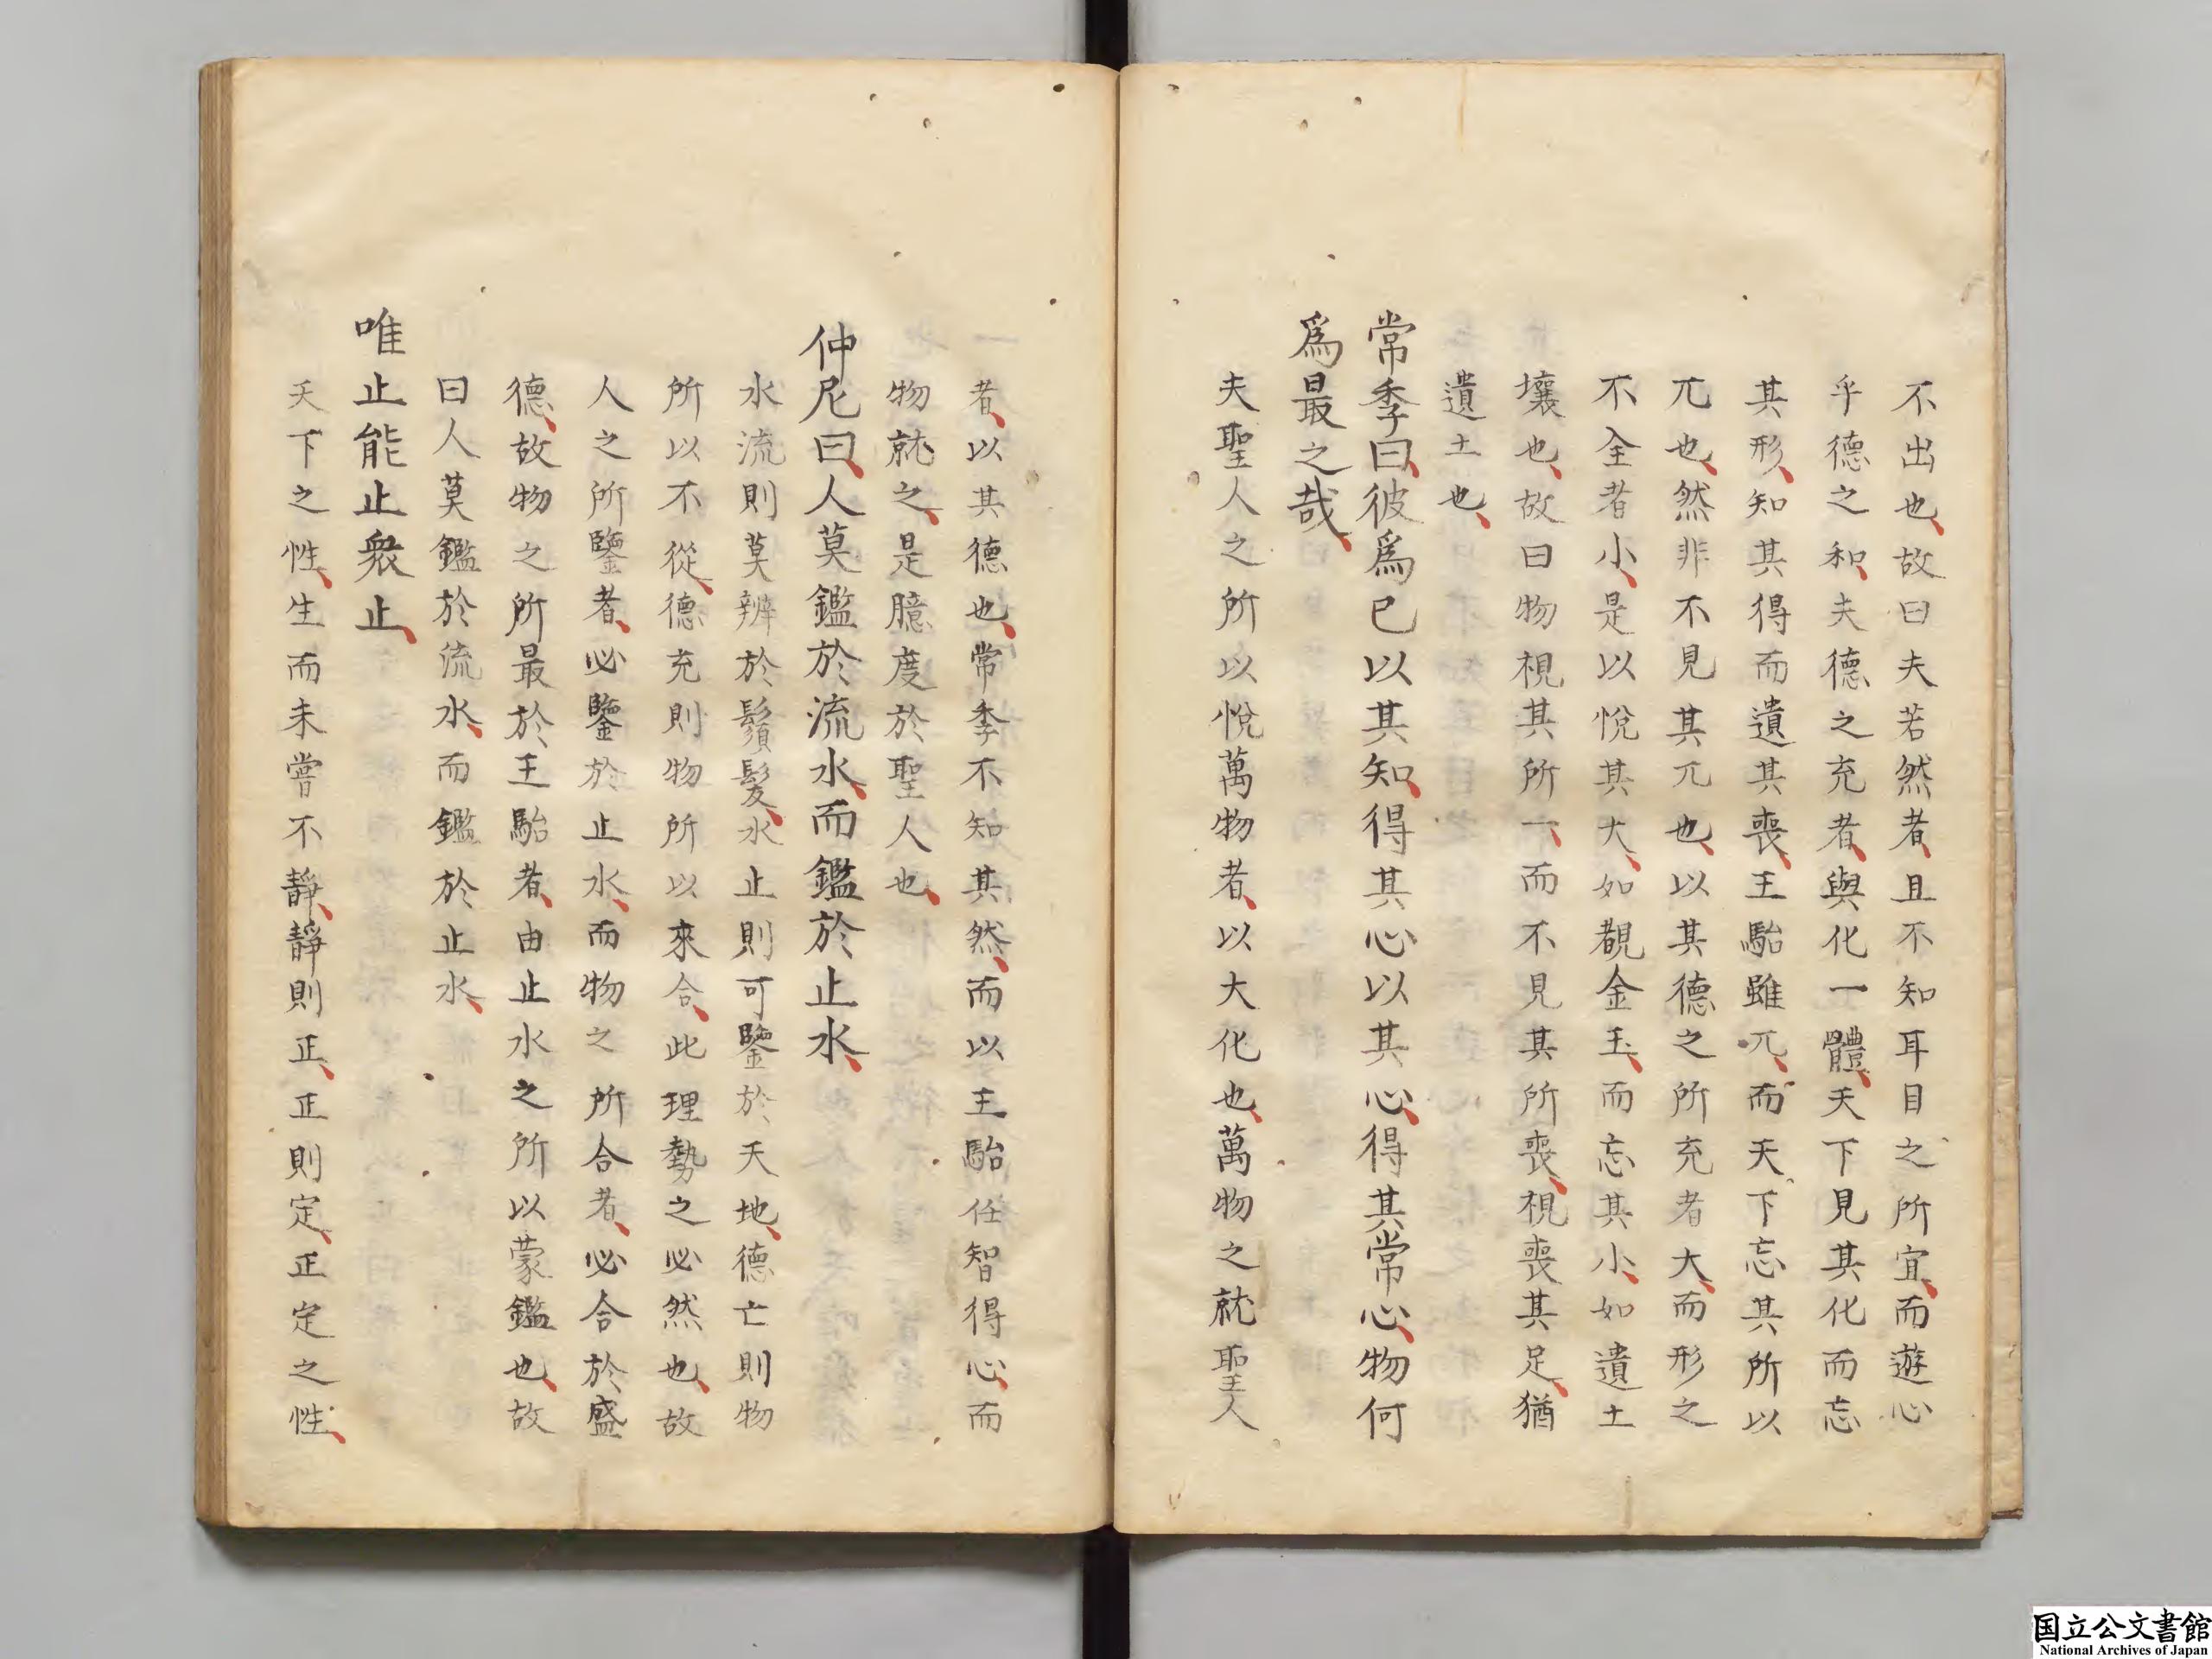 不出也故曰夫若然者且不知耳目之所宜而遊心
乎德之和夫德之充者與化一體天下見其化而忘
其形知其得而遺其喪王駘雖兀而天下忘其所以
兀也然非不見其兀也以其德之所充者大而形之
不全者小是以悅其大如覩金玉而忘其小如遺土
壤也故曰物視其所一而不見其所喪視喪其足猶
遺土也
常季曰彼爲已以其知得其心以其心得其常心物何
爲最之哉
夫聖人之所以悅萬物者以大化也萬物之就聖人
者以其德也常季不知其然而以王駘任智得心而
物就之是臆度於聖人也
仲尼曰人莫鑑於流水而鑑於止水
水流則莫辨於鬚髮水止則可鑒於天地德亡則物
所以不從德充則物所以來合此理勢之必然也故
人之所鑒者必鑒於止水而物之所合者必合於盛
德故物之所最於王駘者由止水之所以蒙鑑也故
曰人莫鑑於流水而鑑於止水
唯止能止衆止
天下之性生而未嘗不靜靜則正正則定正定之性
国立公文書館
National Archives of Japan